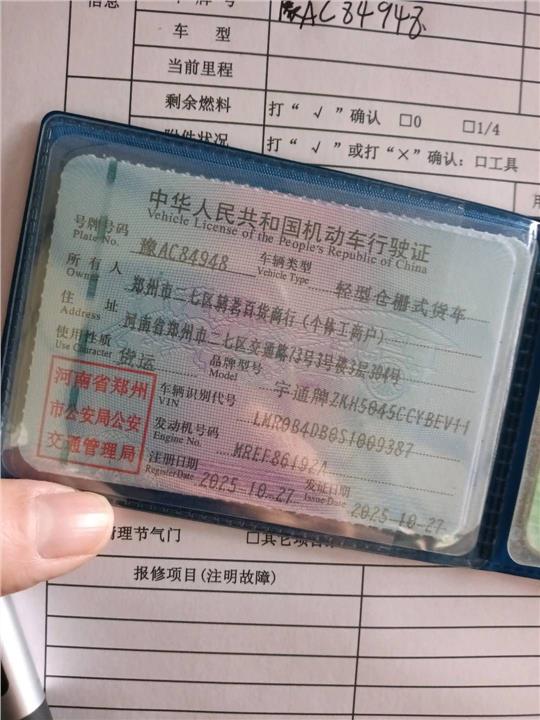 信息
牌号
豫AC84948
车 型
当前里程
剩余燃料
打“√”确认 □0 □1/4
附件状况
打“√”或打“×”确认：口工具
中华人民共和国机动车行驶证
Vehicle License of the People's Republic of China
号牌号码 豫AC84948 车辆类型 轻型仓栅式货车
Plate No. Vehicle Type
所有人 郑州市二七区骑茗百货商行（个体工商户）
Owner
住 址 河南省郑州市二七区交通路73号3号楼3层304号
Address
使用性质 货运 品牌型号 宇通牌ZKH5045CCYBEV11
Use Character Model
河南省郑州
市公安局公安
交通管理局
车辆识别代号 LMR0B4DB0S1009387
VIN
发动机号码
Engine No.
注册日期 2025-10-27 发证日期 2025-10-27
Register Date Issue Date
清理节气门 □其它项目
报修项目(注明故障)